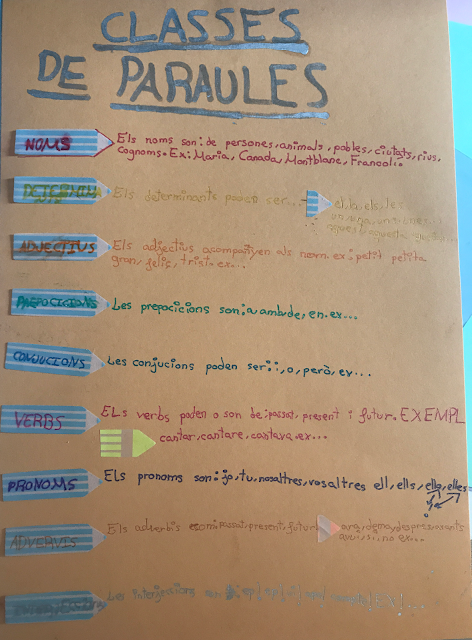 CLASSES
DE PARAULES
NOMS Els noms son: de persones, animals, pobles, ciutats, rius,
Cognoms. Ex: Maria, Canada, Montblanc, Francoli.
DETERMIN Els determinants poden ser...
el, la, els, les
un, una, uns, unes
aquest, aquesta
ADJECTIUS Els adjectius acompanyen als nom. ex: petit petita
gran, feliç, trist. ex...
PREPOCICIONS Les prepocicions son: a amb, de, en. ex...
CONJUCIONS Les conjucions poden ser: i, o, però, ex...
VERBS ELs verbs poden o son de: passat, present i futur. EXEMPL
cantar, cantare, cantava. ex...
PRONOMS Els pronoms son: jo, tu, nosaltres, vosaltres ell, ells, ella, elles
ADVERVIS Els adverbis passat, present, futur ara, demà, despres, abans
avui, si, no ex...
Les interjeccions